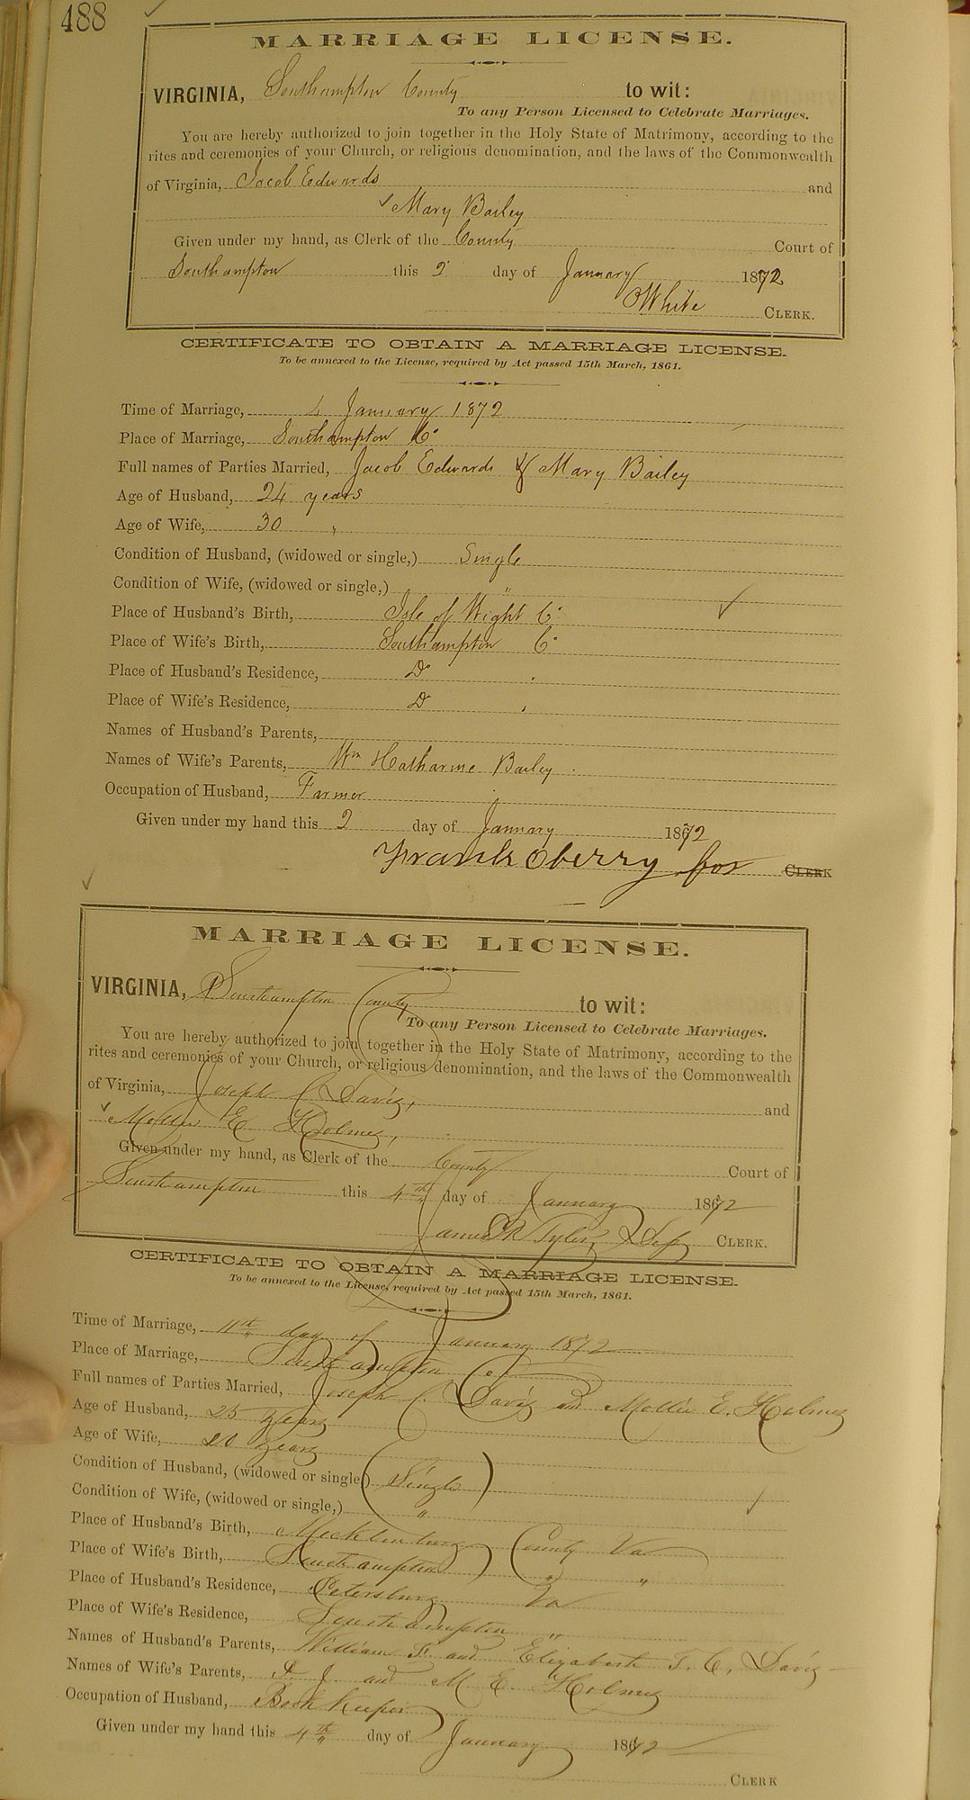 488
MARRIAGE LICENSE.
VIRGINIA, Southampton County to wit:
To any Person Licensed to Celebrate Marriages.
You are hereby authorized to join together in the Holy State of Matrimony, according to the
rites and ceremonies of your Church, or religious denomination, and the laws of the Commonwealth
of Virginia, Jacob Edwards and
Mary Bailey
Given under my hand, as Clerk of the County Court of
Southampton this 2 day of January 1872
White CLERK.
CERTIFICATE TO OBTAIN A MARRIAGE LICENSE.
To be annexed to the License, required by Act passed 15th March, 1861.
Time of Marriage, 4 January 1872
Place of Marriage, Southampton Co
Full names of Parties Married, Jacob Edwards & Mary Bailey
Age of Husband, 24 years
Age of Wife, 30 "
Condition of Husband, (widowed or single,) Single
Condition of Wife, (widowed or single,) "
Place of Husband's Birth, Isle of Wight Co
Place of Wife's Birth, Southampton Co
Place of Husband's Residence, Do "
Place of Wife's Residence, Do "
Names of Husband's Parents,
Names of Wife's Parents, Wm & Catharine Bailey
Occupation of Husband, Farmer
Given under my hand this 2 day of January 1872
Frank Oberry for CLERK
MARRIAGE LICENSE.
VIRGINIA, Southampton County to wit:
To any Person Licensed to Celebrate Marriages.
You are hereby authorized to join together in the Holy State of Matrimony, according to the
rites and ceremonies of your Church, or religious denomination, and the laws of the Commonwealth
of Virginia, Joseph C. Davis, and
Mollie E. Holmes,
Given under my hand, as Clerk of the County Court of
Southampton this 4th day of January 1872
James R Tyler, CLERK.
CERTIFICATE TO OBTAIN A MARRIAGE LICENSE.
To be annexed to the License, required by Act passed 15th March, 1861.
Time of Marriage, 11th day of January 1872
Place of Marriage, Southampton Co
Full names of Parties Married, Joseph C. Davis and Mollie E. Holmes
Age of Husband, 25 years
Age of Wife, 20 years
Condition of Husband, (widowed or single) Single
Condition of Wife, (widowed or single,) "
Place of Husband's Birth, Mecklenburg County Va
Place of Wife's Birth, Southampton " "
Place of Husband's Residence, Petersburg Va
Place of Wife's Residence, Southampton "
Names of Husband's Parents, William and Elizabeth T. C. Davis
Names of Wife's Parents, J. and M. E. Holmes
Occupation of Husband, Book Keeper
Given under my hand this 4th day of January 1872
CLERK